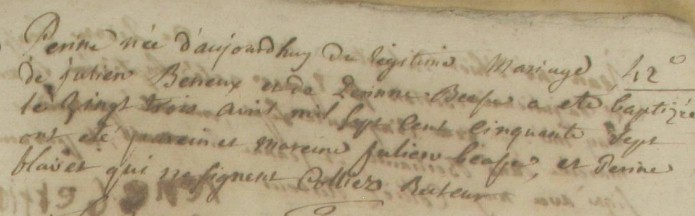 Perine née d'aujourdhuy du legitime Mariage 42e
de julien Beneux et de Perinne Beafse a eté baptizée
le vingt trois avril mil sept cent cinquante sept
ont eté parein et mareine julien beafse, et Perine
blaiset qui ne signent Colliez Recteur